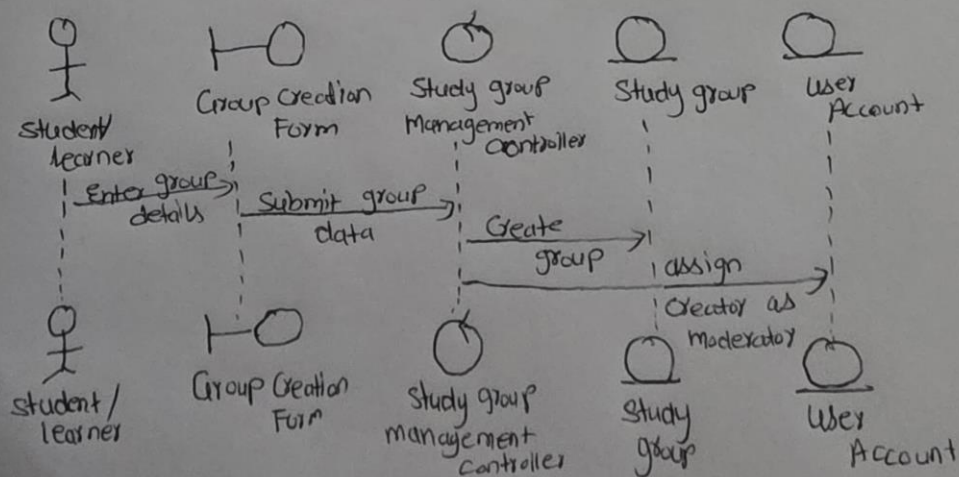 Student/
learner
Group Creation
Form
Study group
Management
Controller
Study group
User
Account
Enter group
details
Submit group
data
Create
group
assign
Creator as
moderator
Student/
learner
Group Creation
Form
Study group
management
controller
Study
group
User
Account